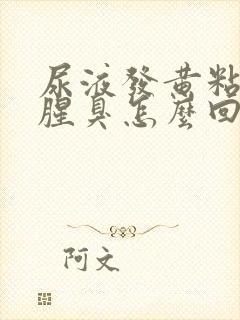 尿液發黃粘
腥臭怎麼回
阿文